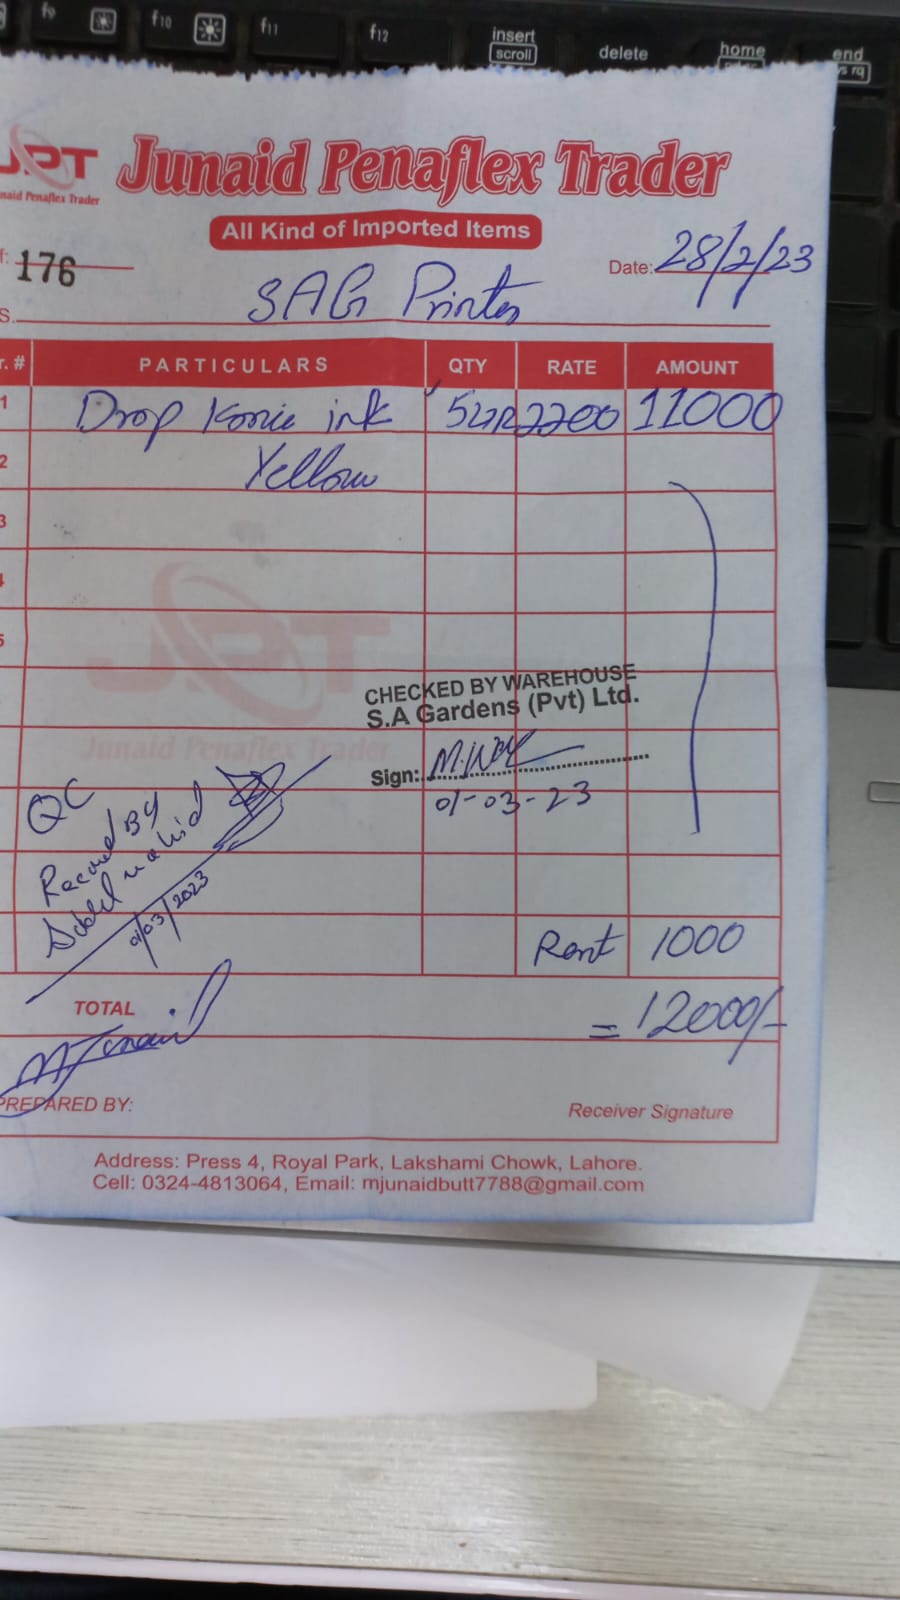 f9 f10 f11 f12 insert delete home end
scroll
JPT Junaid Penaflex Trader
naid Penaflex Trader
All Kind of Imported Items
f: 176 Date: 28/2/23
S. SAG Printer
r. # PARTICULARS QTY RATE AMOUNT
1 Drop Konic ink 5LTR 2200 11000
2 Yellow
3
4
5
JPT
Junaid Penaflex Trader
CHECKED BY WAREHOUSE
S.A Gardens (Pvt) Ltd.
Sign:
01-03-23
QC
By
01/03/2023
Rent 1000
TOTAL = 12000/-
MJunaid
PREPARED BY: Receiver Signature
Address: Press 4, Royal Park, Lakshami Chowk, Lahore.
Cell: 0324-4813064, Email: mjunaidbutt7788@gmail.com